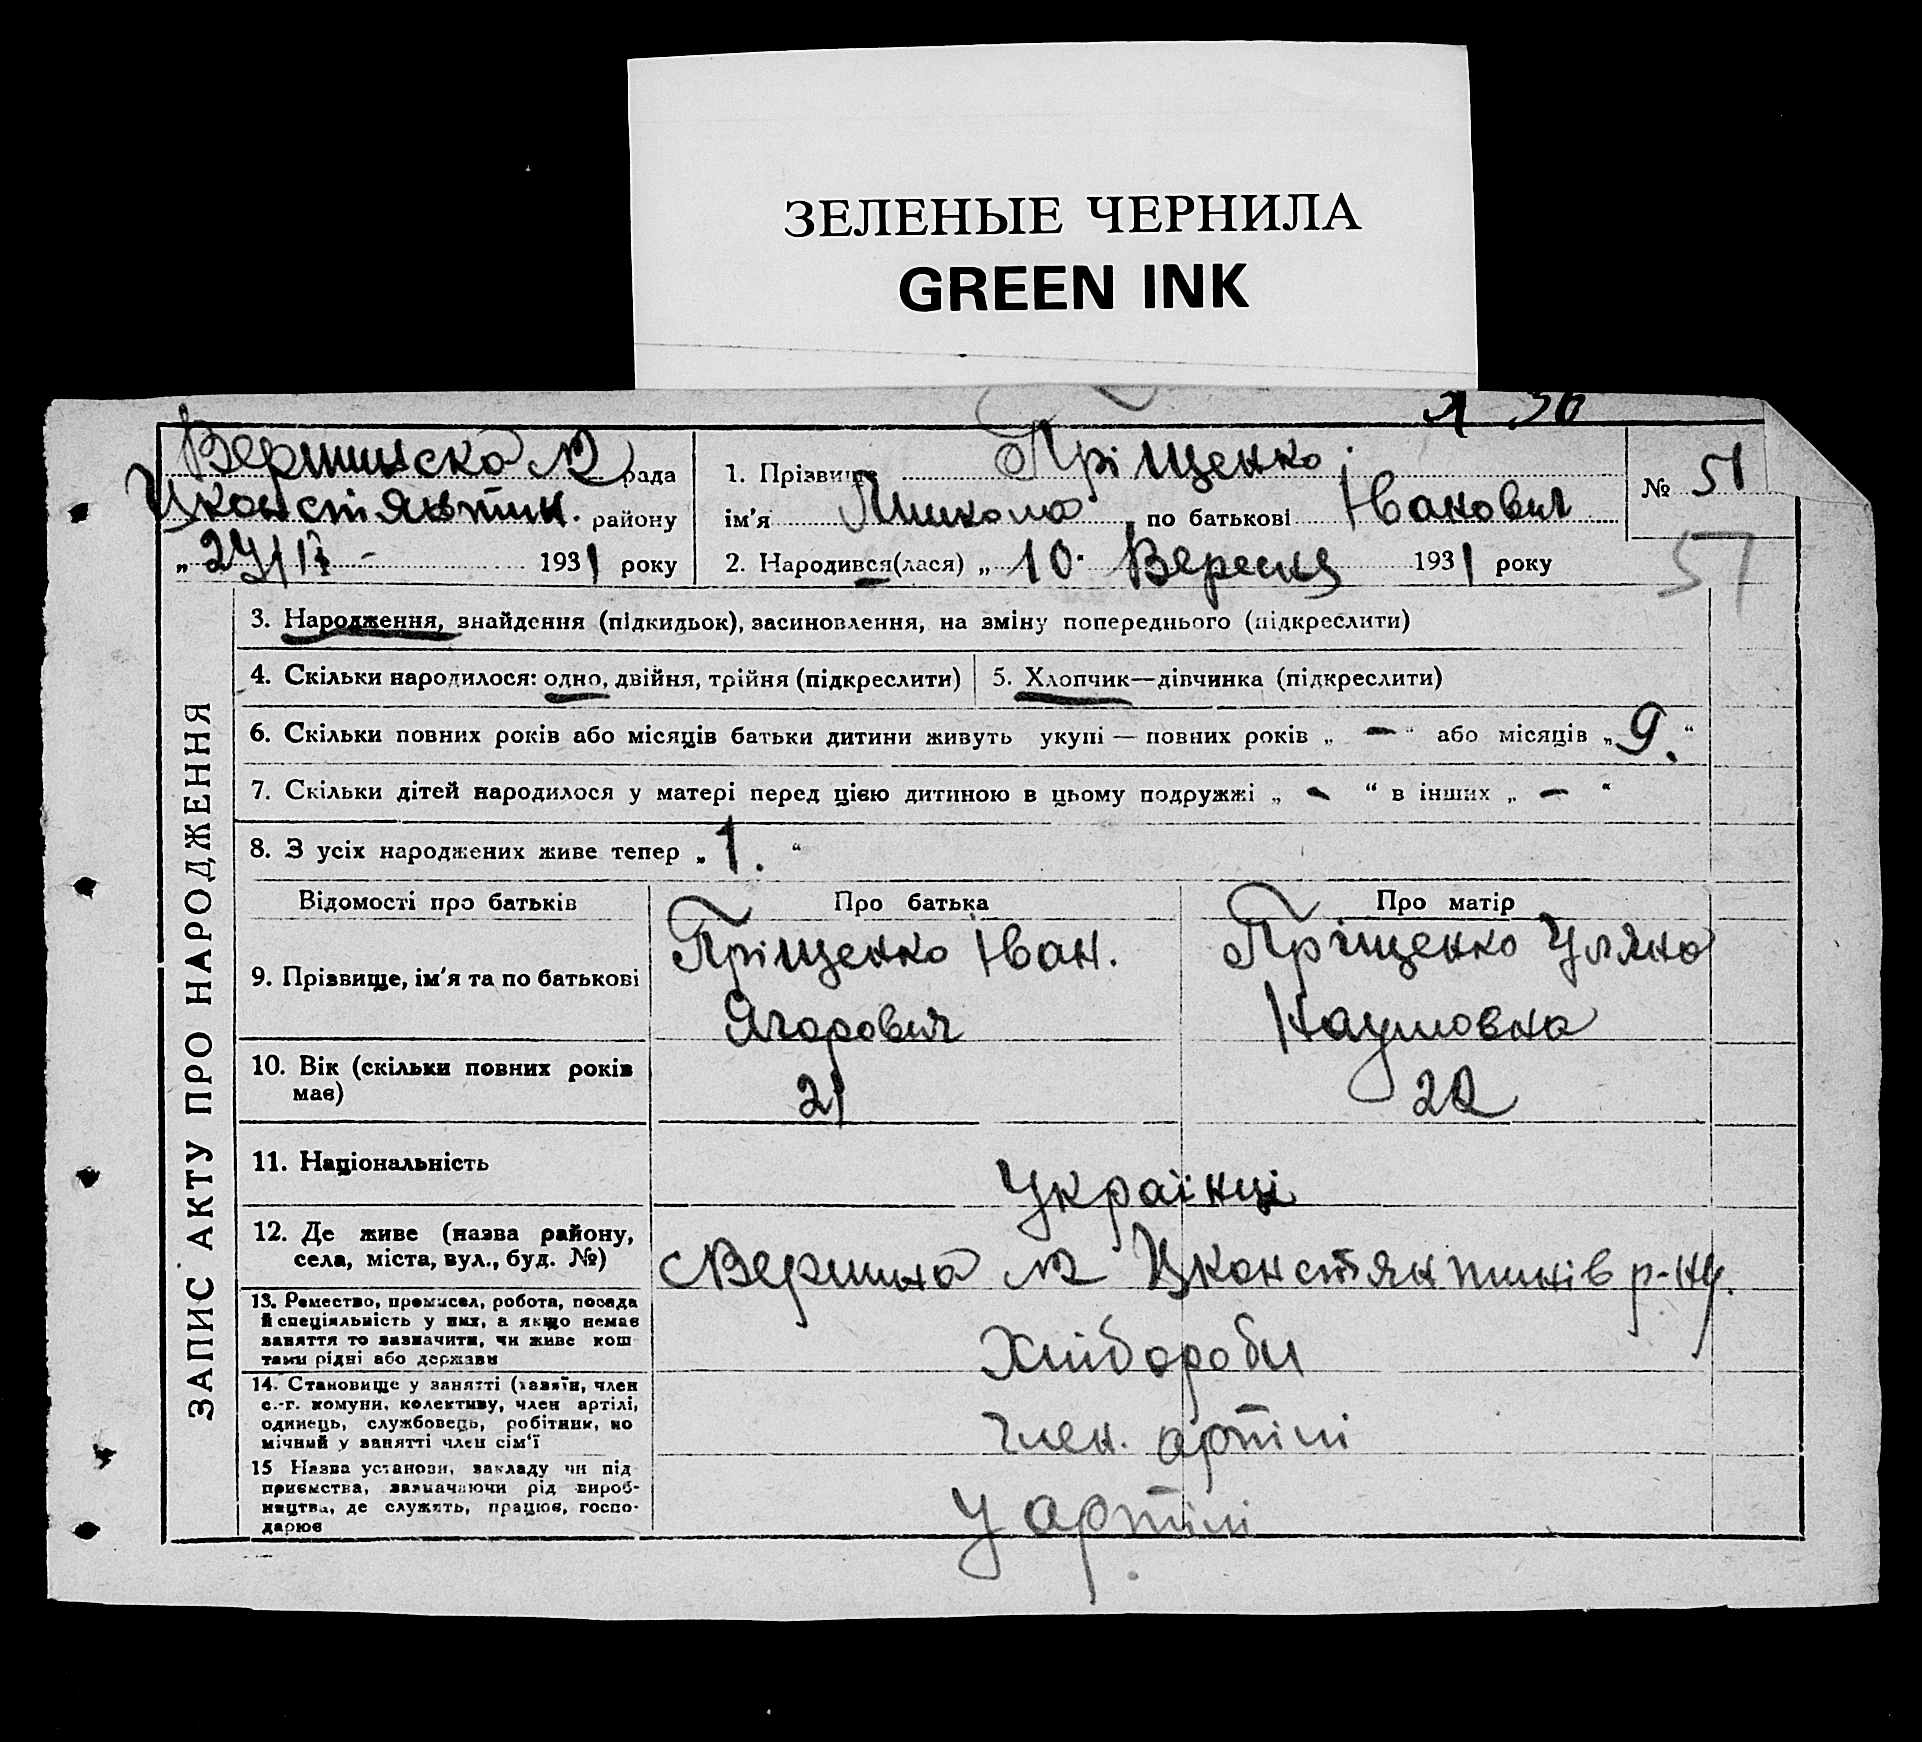 ЗЕЛЕНЫЕ ЧЕРНИЛА
GREEN INK
Вершинска №2 рада
Цконстянтин. району
„ 27/IX - 1931 року
1. Прізвище Пріщенко
ім'я Микола по батькові Іванович
2. Народився(лася) „ 10. Вересня 1931 року
№ 51
51
3. Народження, знайдення (підкидьок), засиновлення, на зміну попереднього (підкреслити)
4. Скільки народилося: одно, двійня, трійня (підкреслити)
5. Хлопчик—дівчинка (підкреслити)
6. Скільки повних років або місяців батьки дитини живуть укупі — повних років „ — “ або місяців „ 9. “
7. Скільки дітей народилося у матері перед цією дитиною в цьому подружжі „ - “ в інших „ — “
8. З усіх народжених живе тепер „ 1. “
ЗАПИС АКТУ ПРО НАРОДЖЕННЯ
Відомості про батьків
Про батька
Про матір
9. Прізвище, ім'я та по батькові
Пріщенко Іван.
Ягорович
Пріщенко Уляна
Наумовна
10. Вік (скільки повних років
має)
21
22
11. Національність
Українці
12. Де живе (назва району,
села, міста, вул., буд. №)
с Вершина №2 Цконстянтинів р-ну.
13. Ремество, промисел, робота, посада
й спеціяльність у них, а якщо немає
заняття то зазначити, чи живе кош
тами рідні або держави
Хлібороби
14. Становище у занятті (хазяїн, член
с.-г. комуни, колективу, член артілі,
одинець, службовець, робітник, по
мічний у занятті член сім'ї
член. артілі
15 Назва установи, закладу чи під
приємства, зазначаючи рід вироб-
ництва, де служать, працює, госпо-
дарює
у артілі